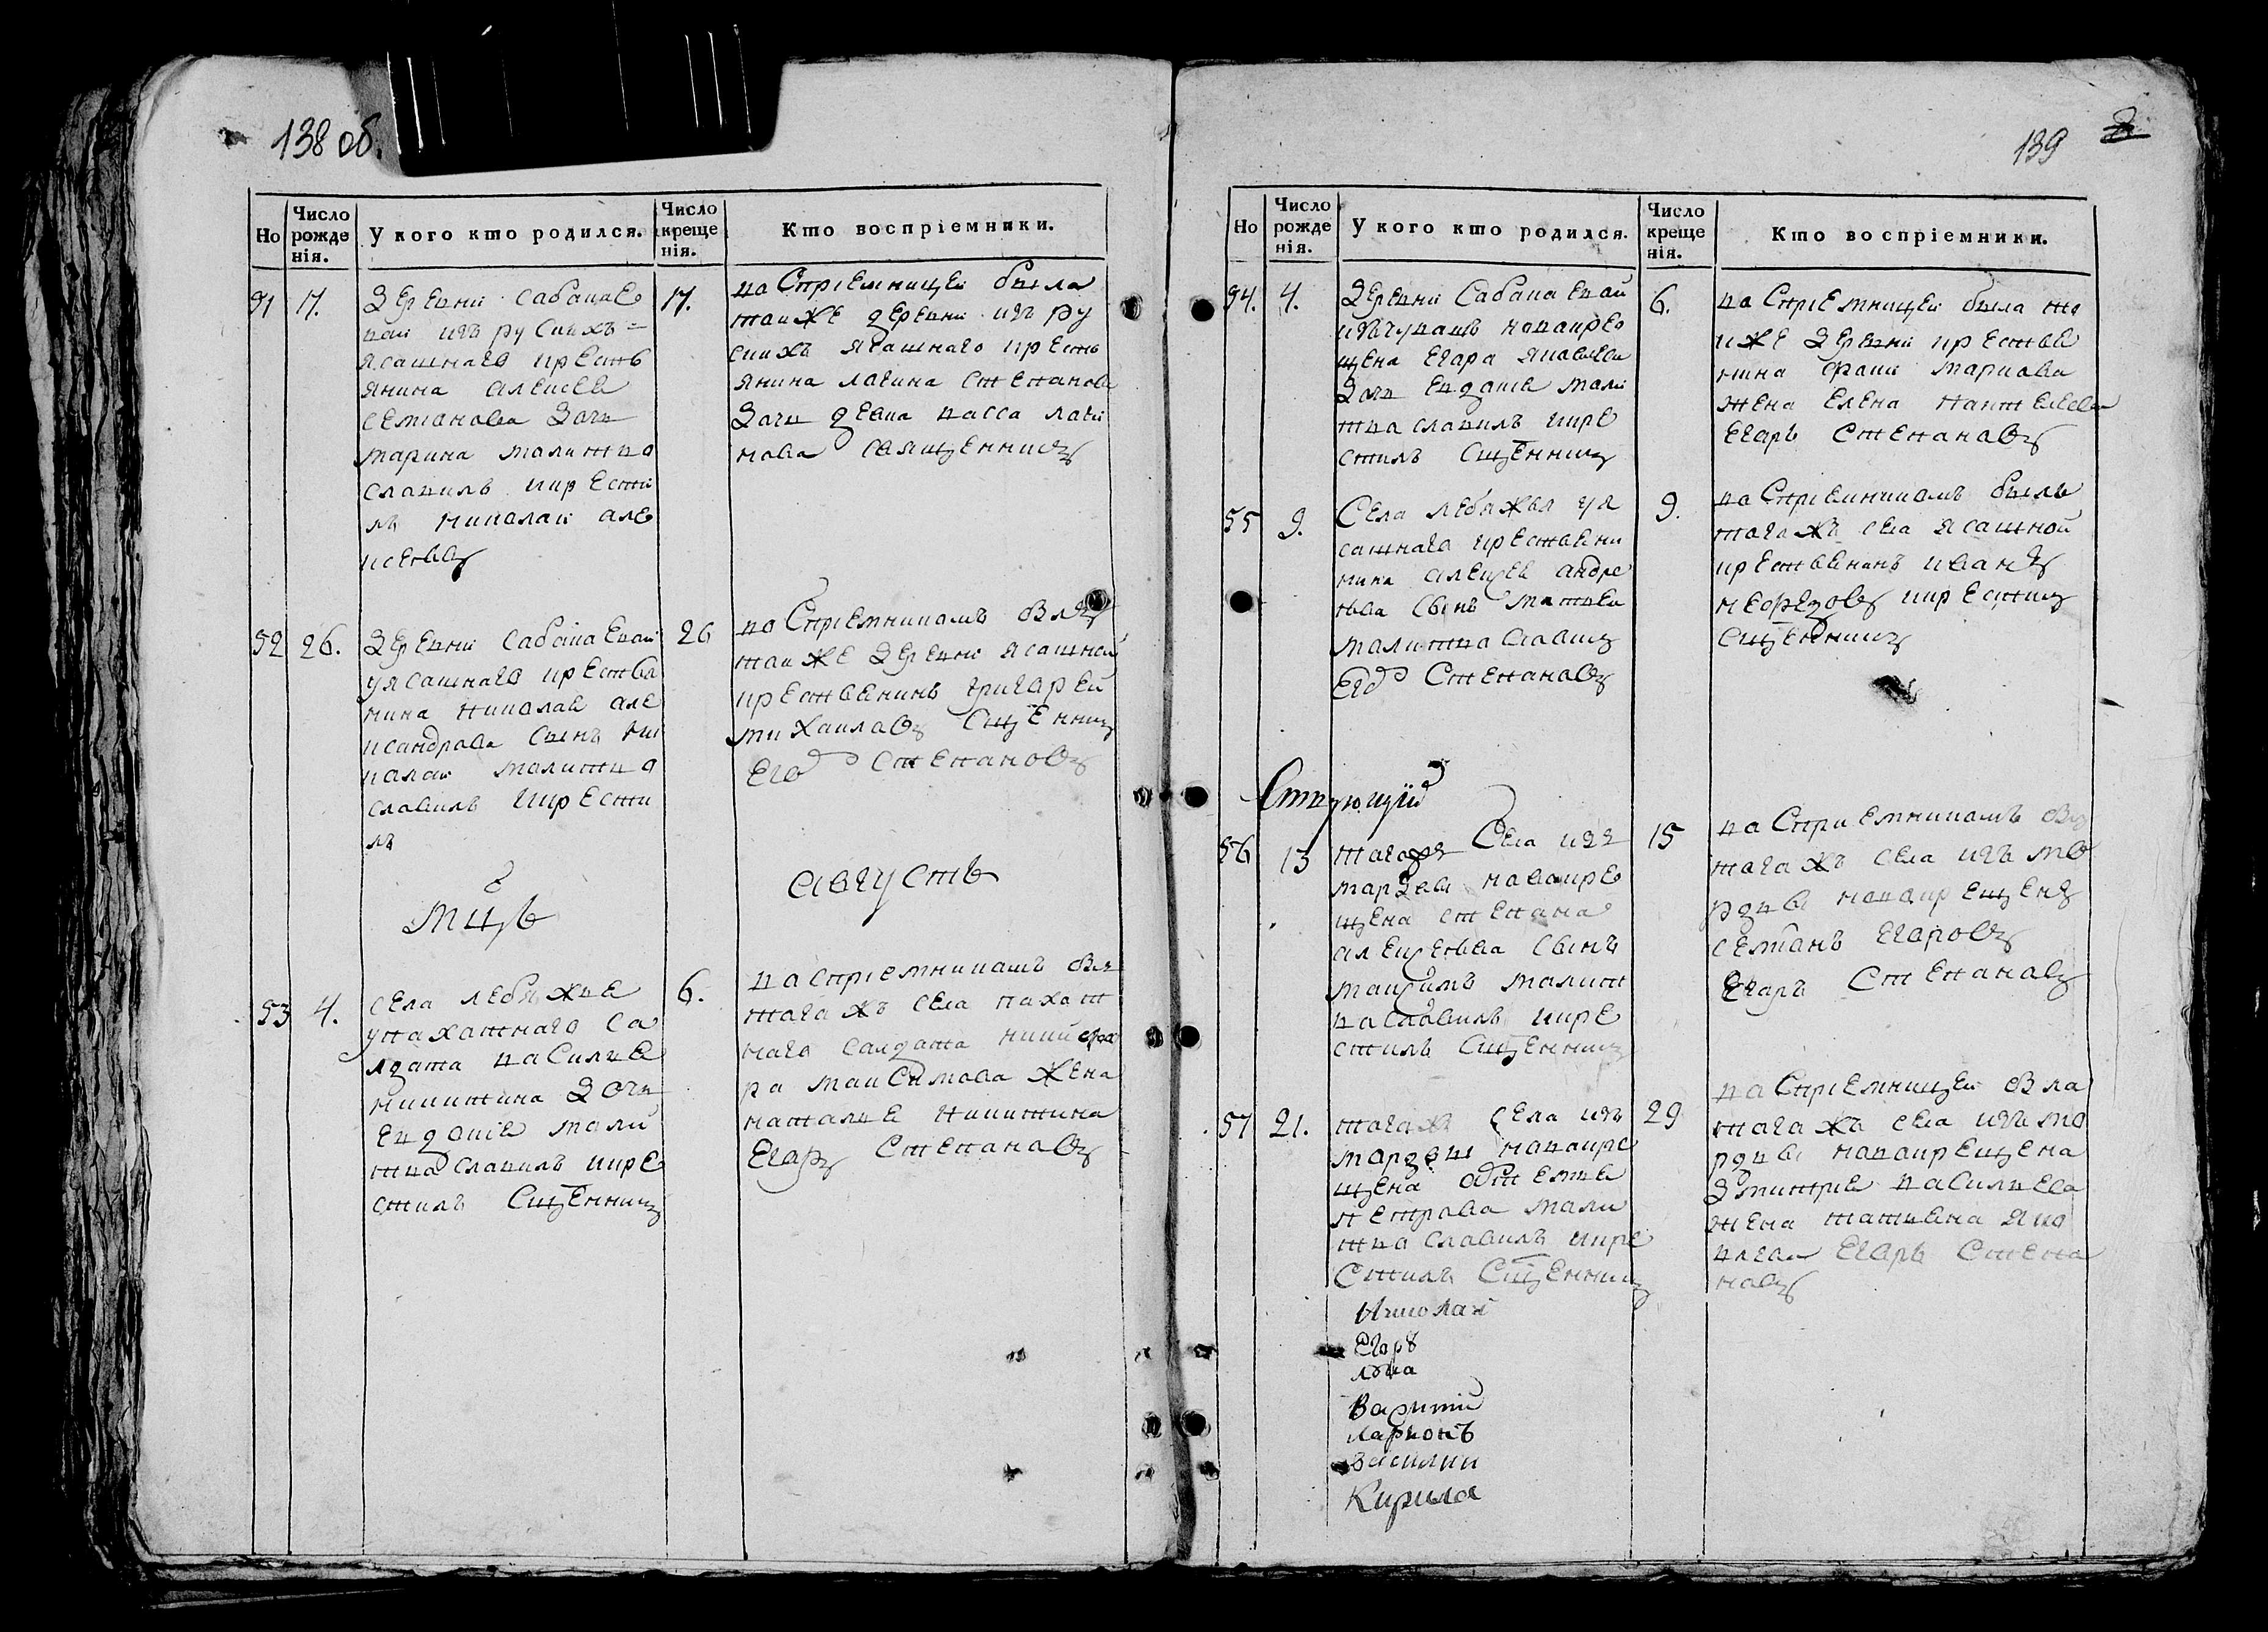 138 об.
Но
Число рожденія.
У кого кто родился.
Число крещенія.
Кто воспріемники.
51 17. Деревни сабакае
вай изъ рускихъ =
ясашнаго кресть
янина алексея
семіонова дочь
марина малитво
славилъ икрести
лъ николаи але
ксеевъ
17. воспріемницеи была
таиже деревни изъ ру
скихъ ясашнаго кресть
янина лагина степанова
дочь девка васса лаги
нова священникъ
52 26. Деревни сабакаевай
у ясашнаго крестья
нина николая але
ксандрова сынъ ни
калаи малитво
славилъ икрести
лъ
26 воспріемникамъ былъ
таиже деревни ясашной
крестьянинъ григарей
михаилавъ сщенникъ
Егоръ степановъ
мцъ августъ
53 4. села лебяжья
у пахатнаго са
лдата василья
никитина дочь
Евдокія мали
твославилъ икре
стилъ сщенникъ
6. воспріемникамъ был
тагожъ села пахат
наго салдата никифо
ра максимова жена
наталья никитина
Егаръ степанавъ
139
Но
Число рожденія.
У кого кто родился.
Число крещенія.
Кто воспріемники.
54. 4. Деревни сабакаевай
изъ чувашъ новокре
щена Егара яковлева
дочь Евдокія мали
твославилъ икре
стилъ сщенникъ
6. воспріемницеи была то
иже деревни крестья
нина
жена елена пантелеева
Егаръ степанавъ
55 9. Села лебяжья у я
сашнаго крестьяни
нина алексея андре
ева сынъ матвеи
малитвославилъ
Егоръ степанавъ
9. воспріемникамъ былъ
тагожъ села ясашной
крестьянинъ иванъ
нефедовъ икрестилъ
сщенникъ
56 13 тагожъ села изъ
мардвы новокре
щена степана
алексеева сынъ
максимъ малит
вославилъ икре
стилъ сщенникъ
15 воспріемникамъ был
тагожъ села изъ мо
рдвы новокрещенъ
семіонъ егаровъ
Егаръ степанавъ
57 21. тагожъ села изъ
мардвы новокре
щена артемья
петрова мали
твославилъ икре
стилъ сщенникъ
29 воспріемницеи была
тагожъ села изъ мо
рдвы новокрещена
дмитрия васильева
жена татьяна яко
влева Егаръ степа
навъ
Николаи
Егаръ
Ларионъ
Василии
Кирила